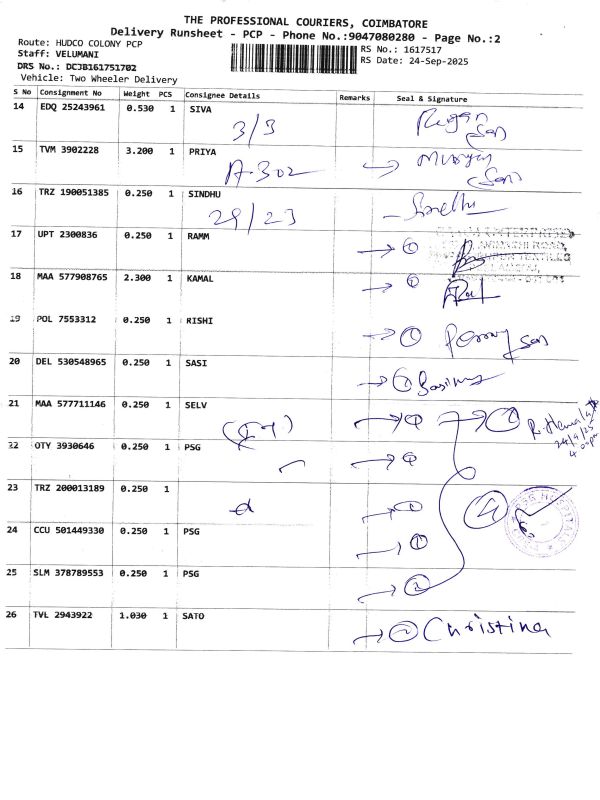 THE PROFESSIONAL COURIERS, COIMBATORE
Delivery Runsheet - PCP - Phone No.:9047080280 - Page No.:2
Route: HUDCO COLONY PCP
Staff: VELUMANI
DRS No.: DCJB161751702
Vehicle: Two Wheeler Delivery
RS No.: 1617517
RS Date: 24-Sep-2025
S No Consignment No Weight PCS Consignee Details Remarks Seal & Signature
14 EDQ 25243961 0.530 1 SIVA
3/3
15 TVM 3902228 3.200 1 PRIYA
A-302
16 TRZ 190051385 0.250 1 SINDHU
29/23 Sindhu
17 UPT 2300836 0.250 1 RAMM
18 MAA 577908765 2.300 1 KAMAL
19 POL 7553312 0.250 1 RISHI
20 DEL 530548965 0.250 1 SASI
21 MAA 577711146 0.250 1 SELV
24/9/25
22 OTY 3930646 0.250 1 PSG
23 TRZ 200013189 0.250 1
PSG HOSPITALS
24 CCU 501449330 0.250 1 PSG
25 SLM 378789553 0.250 1 PSG
26 TVL 2943922 1.030 1 SATO
Christina